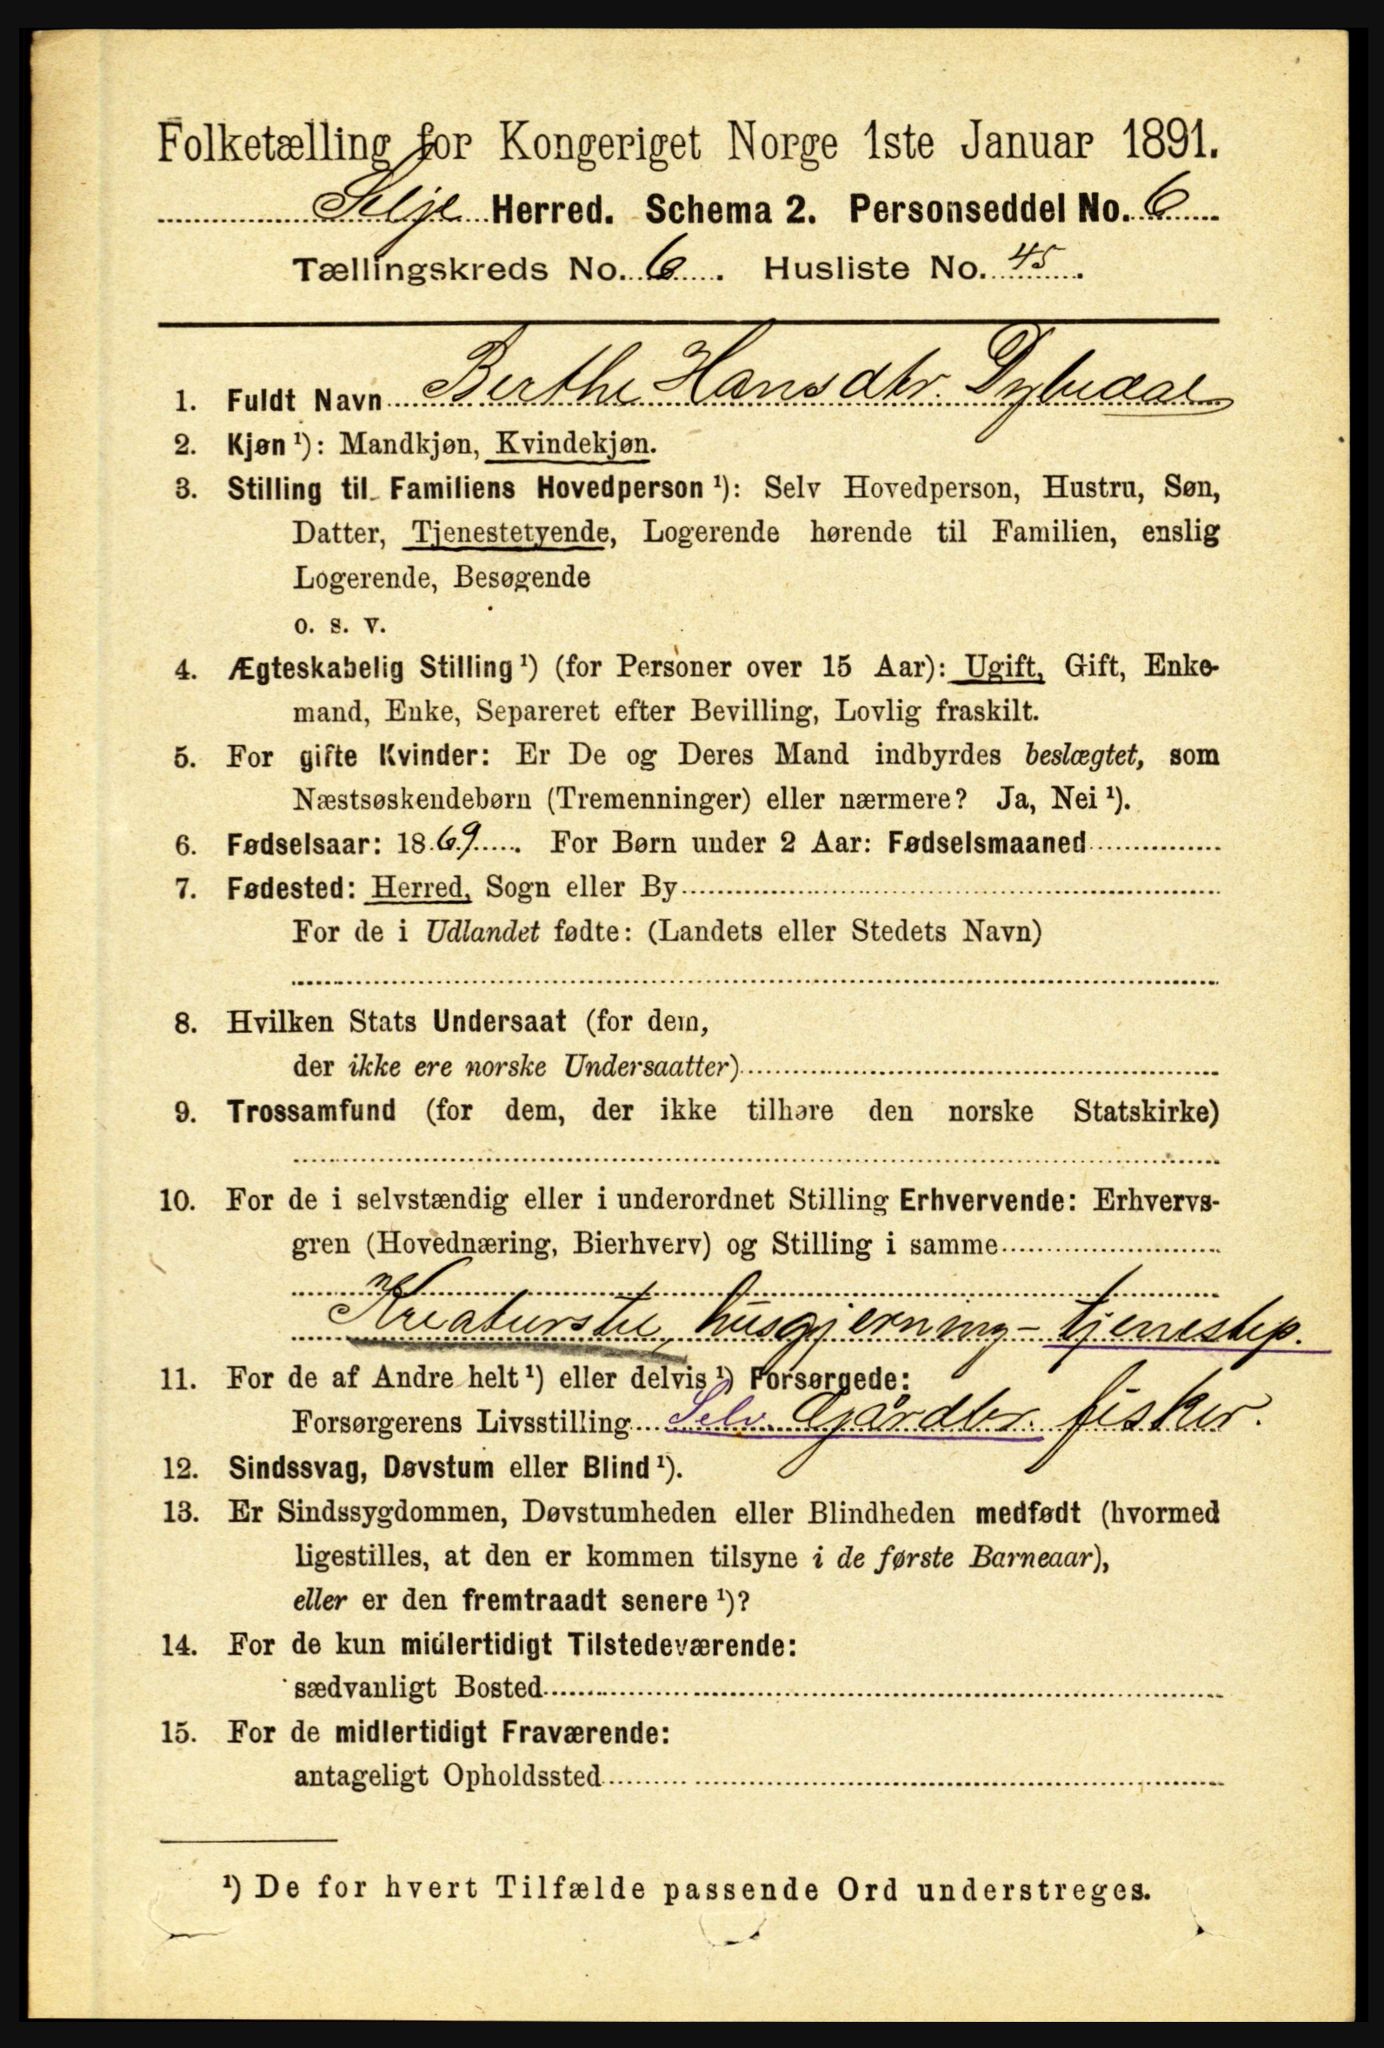 Folketælling for Kongeriget Norge 1ste Januar 1891.
Selje Herred. Schema 2. Personseddel No. 6
Tællingskreds No. 6. Husliste No. 45.
1. Fuldt Navn Berthe Hansdtr. Dybedal
2. Kjøn ¹): Mandkjøn, Kvindekjøn.
3. Stilling til Familiens Hovedperson ¹): Selv Hovedperson, Hustru, Søn,
Datter, Tjenestetyende, Logerende hørende til Familien, enslig
Logerende, Besøgende
o. s. v.
4. Ægteskabelig Stilling ¹) (for Personer over 15 Aar): Ugift, Gift, Enke-
mand, Enke, Separeret efter Bevilling, Lovlig fraskilt.
5. For gifte Kvinder: Er De og Deres Mand indbyrdes beslægtet, som
Næstsøskendebørn (Tremenninger) eller nærmere? Ja, Nei ¹).
6. Fødselsaar: 1869. For Børn under 2 Aar: Fødselsmaaned
7. Fødested: Herred, Sogn eller By
For de i Udlandet fødte: (Landets eller Stedets Navn)
8. Hvilken Stats Undersaat (for dem,
der ikke ere norske Undersaatter)
9. Trossamfund (for dem, der ikke tilhøre den norske Statskirke)
10. For de i selvstændig eller i underordnet Stilling Erhvervende: Erhvervs-
gren (Hovednæring, Bierhverv) og Stilling i samme
Kreaturstel, husgjerning - tjenestep.
11. For de af Andre helt ¹) eller delvis ¹) Forsørgede:
Forsørgerens Livsstilling Selv. Gårdbr. fisker.
12. Sindssvag, Døvstum eller Blind ¹).
13. Er Sindssygdommen, Døvstumheden eller Blindheden medfødt (hvormed
ligestilles, at den er kommen tilsyne i de første Barneaar),
eller er den fremtraadt senere ¹)?
14. For de kun midlertidigt Tilstedeværende:
sædvanligt Bosted
15. For de midlertidigt Fraværende:
antageligt Opholdssted
¹) De for hvert Tilfælde passende Ord understreges.